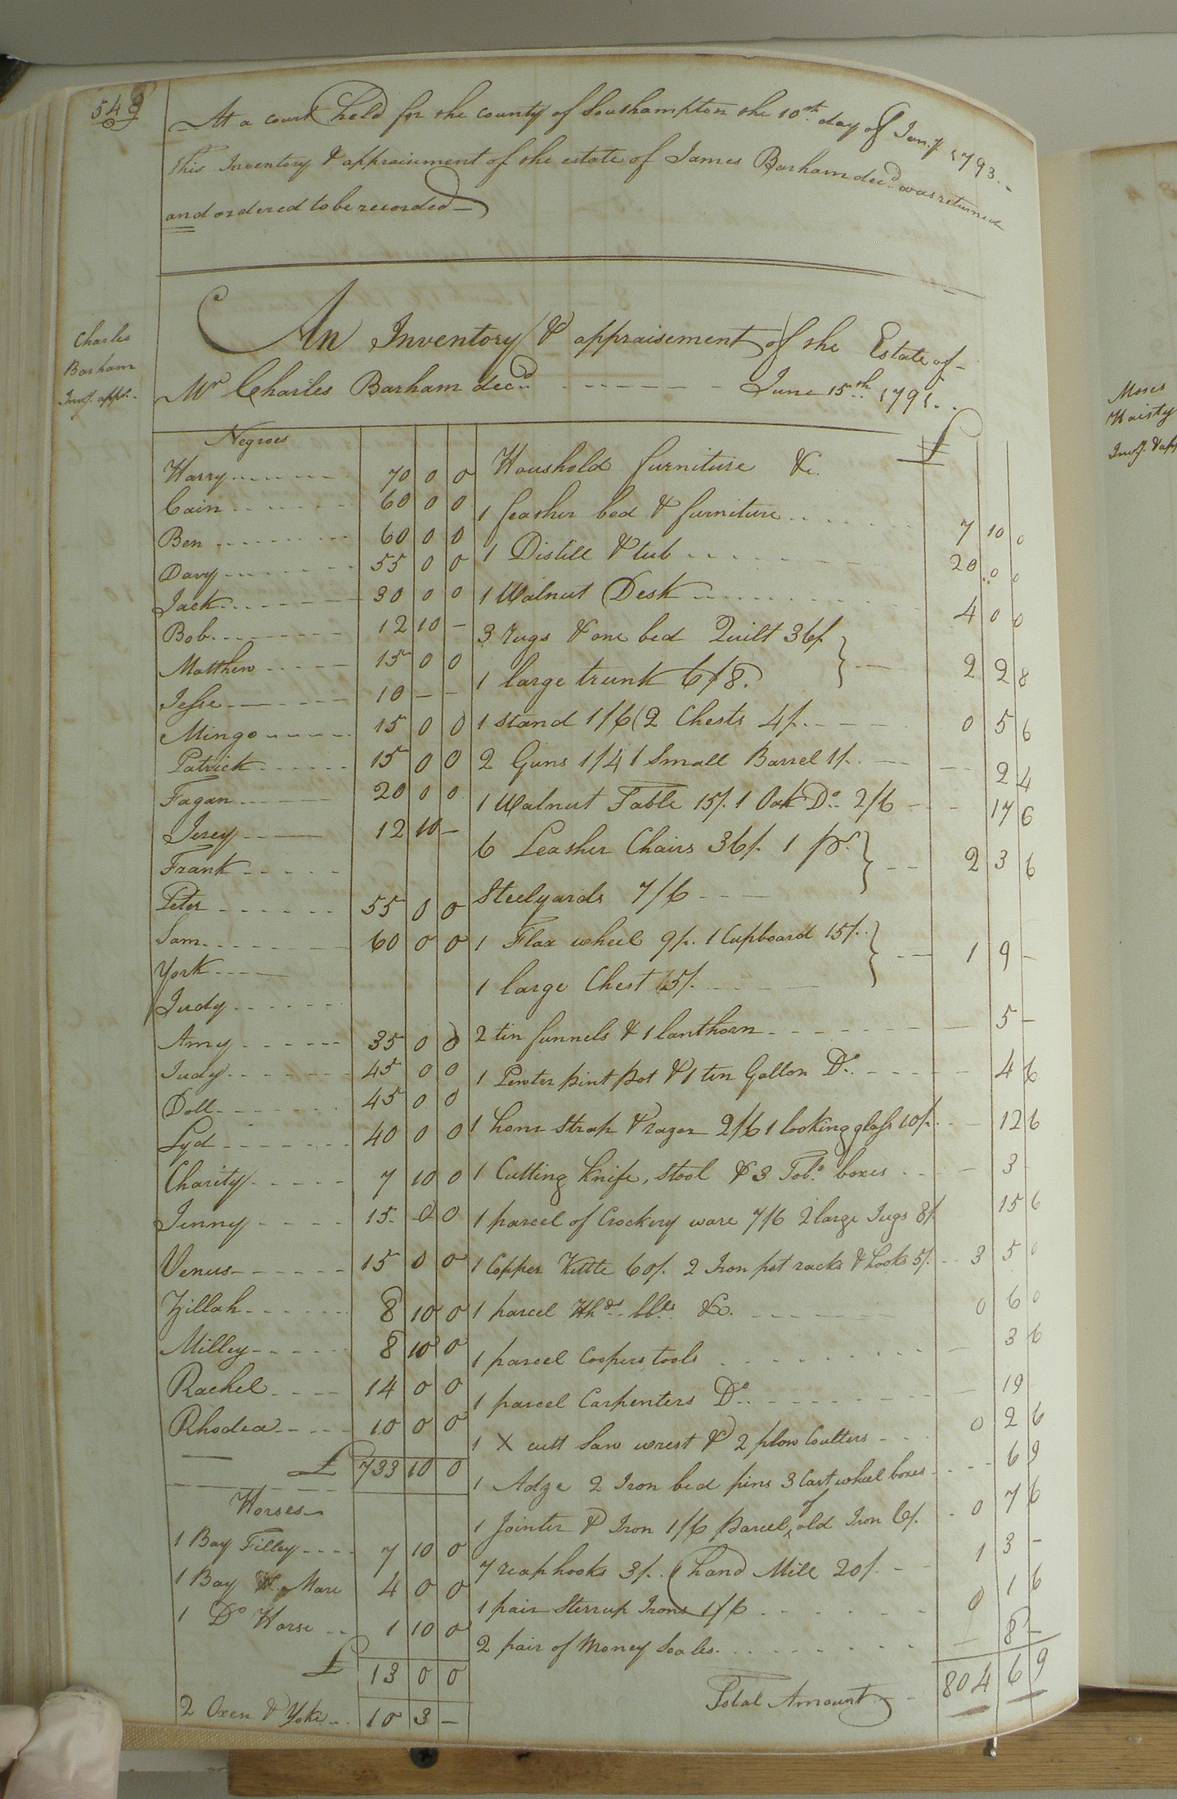 549
At a court held for the county of Southampton the 10th. day of Jany. 1793.
This Inventory & appraisement of the estate of James Barham decd. was returned
and ordered to be recorded
Charles
Barham
Invy. appt.
An Inventory & appraisement of the Estate of
Mr Charles Barham decd. June 15th. 1791.
£
Negroes
Harry 70 0 0
Cain 60 0 0
Ben 60 0 0
Davy 55 0 0
Jack 30 0 0
Bob 12 10 -
Matthew 15 0 0
Jesse 10 - -
Mingo 15 0 0
Patrick 15 0 0
Fagan 20 0 0
Jerey 12 10 -
Frank
Peter 55 0 0
Sam 60 0 0
York
Judy
Amy 35 0 0
Judy 45 0 0
Doll 45 0 0
Lyd 40 0 0
Charity 7 10 0
Jenny 15 0 0
Venus 15 0 0
Zillah 8 10 0
Milley 8 10 0
Rachel 14 0 0
Rhodea 10 0 0
£ 733 10 0
Horses
1 Bay Filley 7 10 0
1 Bay Mare 4 0 0
1 Do Horse 1 10 0
£ 13 0 0
2 Oxen & Yoke 10 3 -
Houshold furniture &c.
1 feather bed & furniture 7 10 0
1 Distill & tub 20 0 0
1 Walnut Desk 4 0 0
3 rugs & one bed Quilt 36/
1 large trunk 6/8 2 2 8
1 stand 1/6 2 Chests 4/. 0 5 6
2 Guns 1/4 1 Small Barrel 1/. 2 4
1 Walnut Table 15/. 1 Oak Do. 2/6 17 6
6 Leather Chairs 36/. 1 pr.
Steelyards 7/6 2 3 6
1 Flax wheel 9/. 1 Cupboard 15/.
1 large Chest 5/. 1 9 -
2 tin funnels & 1 lanthorn 5 -
1 Pewter pint pot & 1 tin Gallon Do. 4 6
1 hone strap & razor 2/6 1 looking glass 10/. 12 6
1 Cutting knife, stool & 3 Tobo. boxes 3
1 parcel of Crockery ware 7/6 2 large Jugs 8/ 15 6
1 Copper Kettle 60/. 2 Iron pot racks & hooks 5/. 3 5 0
1 parcel Hhds. bbls &c. 0 6 0
1 parcel Coopers tools 3 6
1 parcel Carpenters Do. 19
1 X cutt Saw wrest & 2 plow Coulters 0 2 6
1 Adze 2 Iron bed pins 3 Cart wheel boxes 6 9
1 Jointer & Iron 1/6 parcel of old Iron 6/. 0 7 6
7 reaphooks 3/. 1 hand Mill 20/. 1 3 -
1 pair Sterrup Irons 1/6 0 1 6
2 pair of Money Scales 8 -
Total Amount 804 6 9
Moses